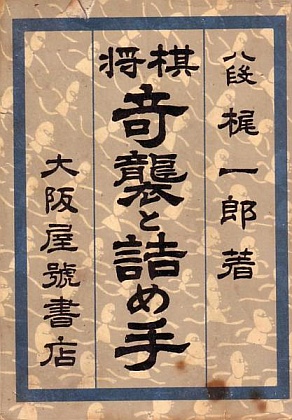 八段 梶一郎著
将棋
奇襲と詰め手
大阪屋號書店